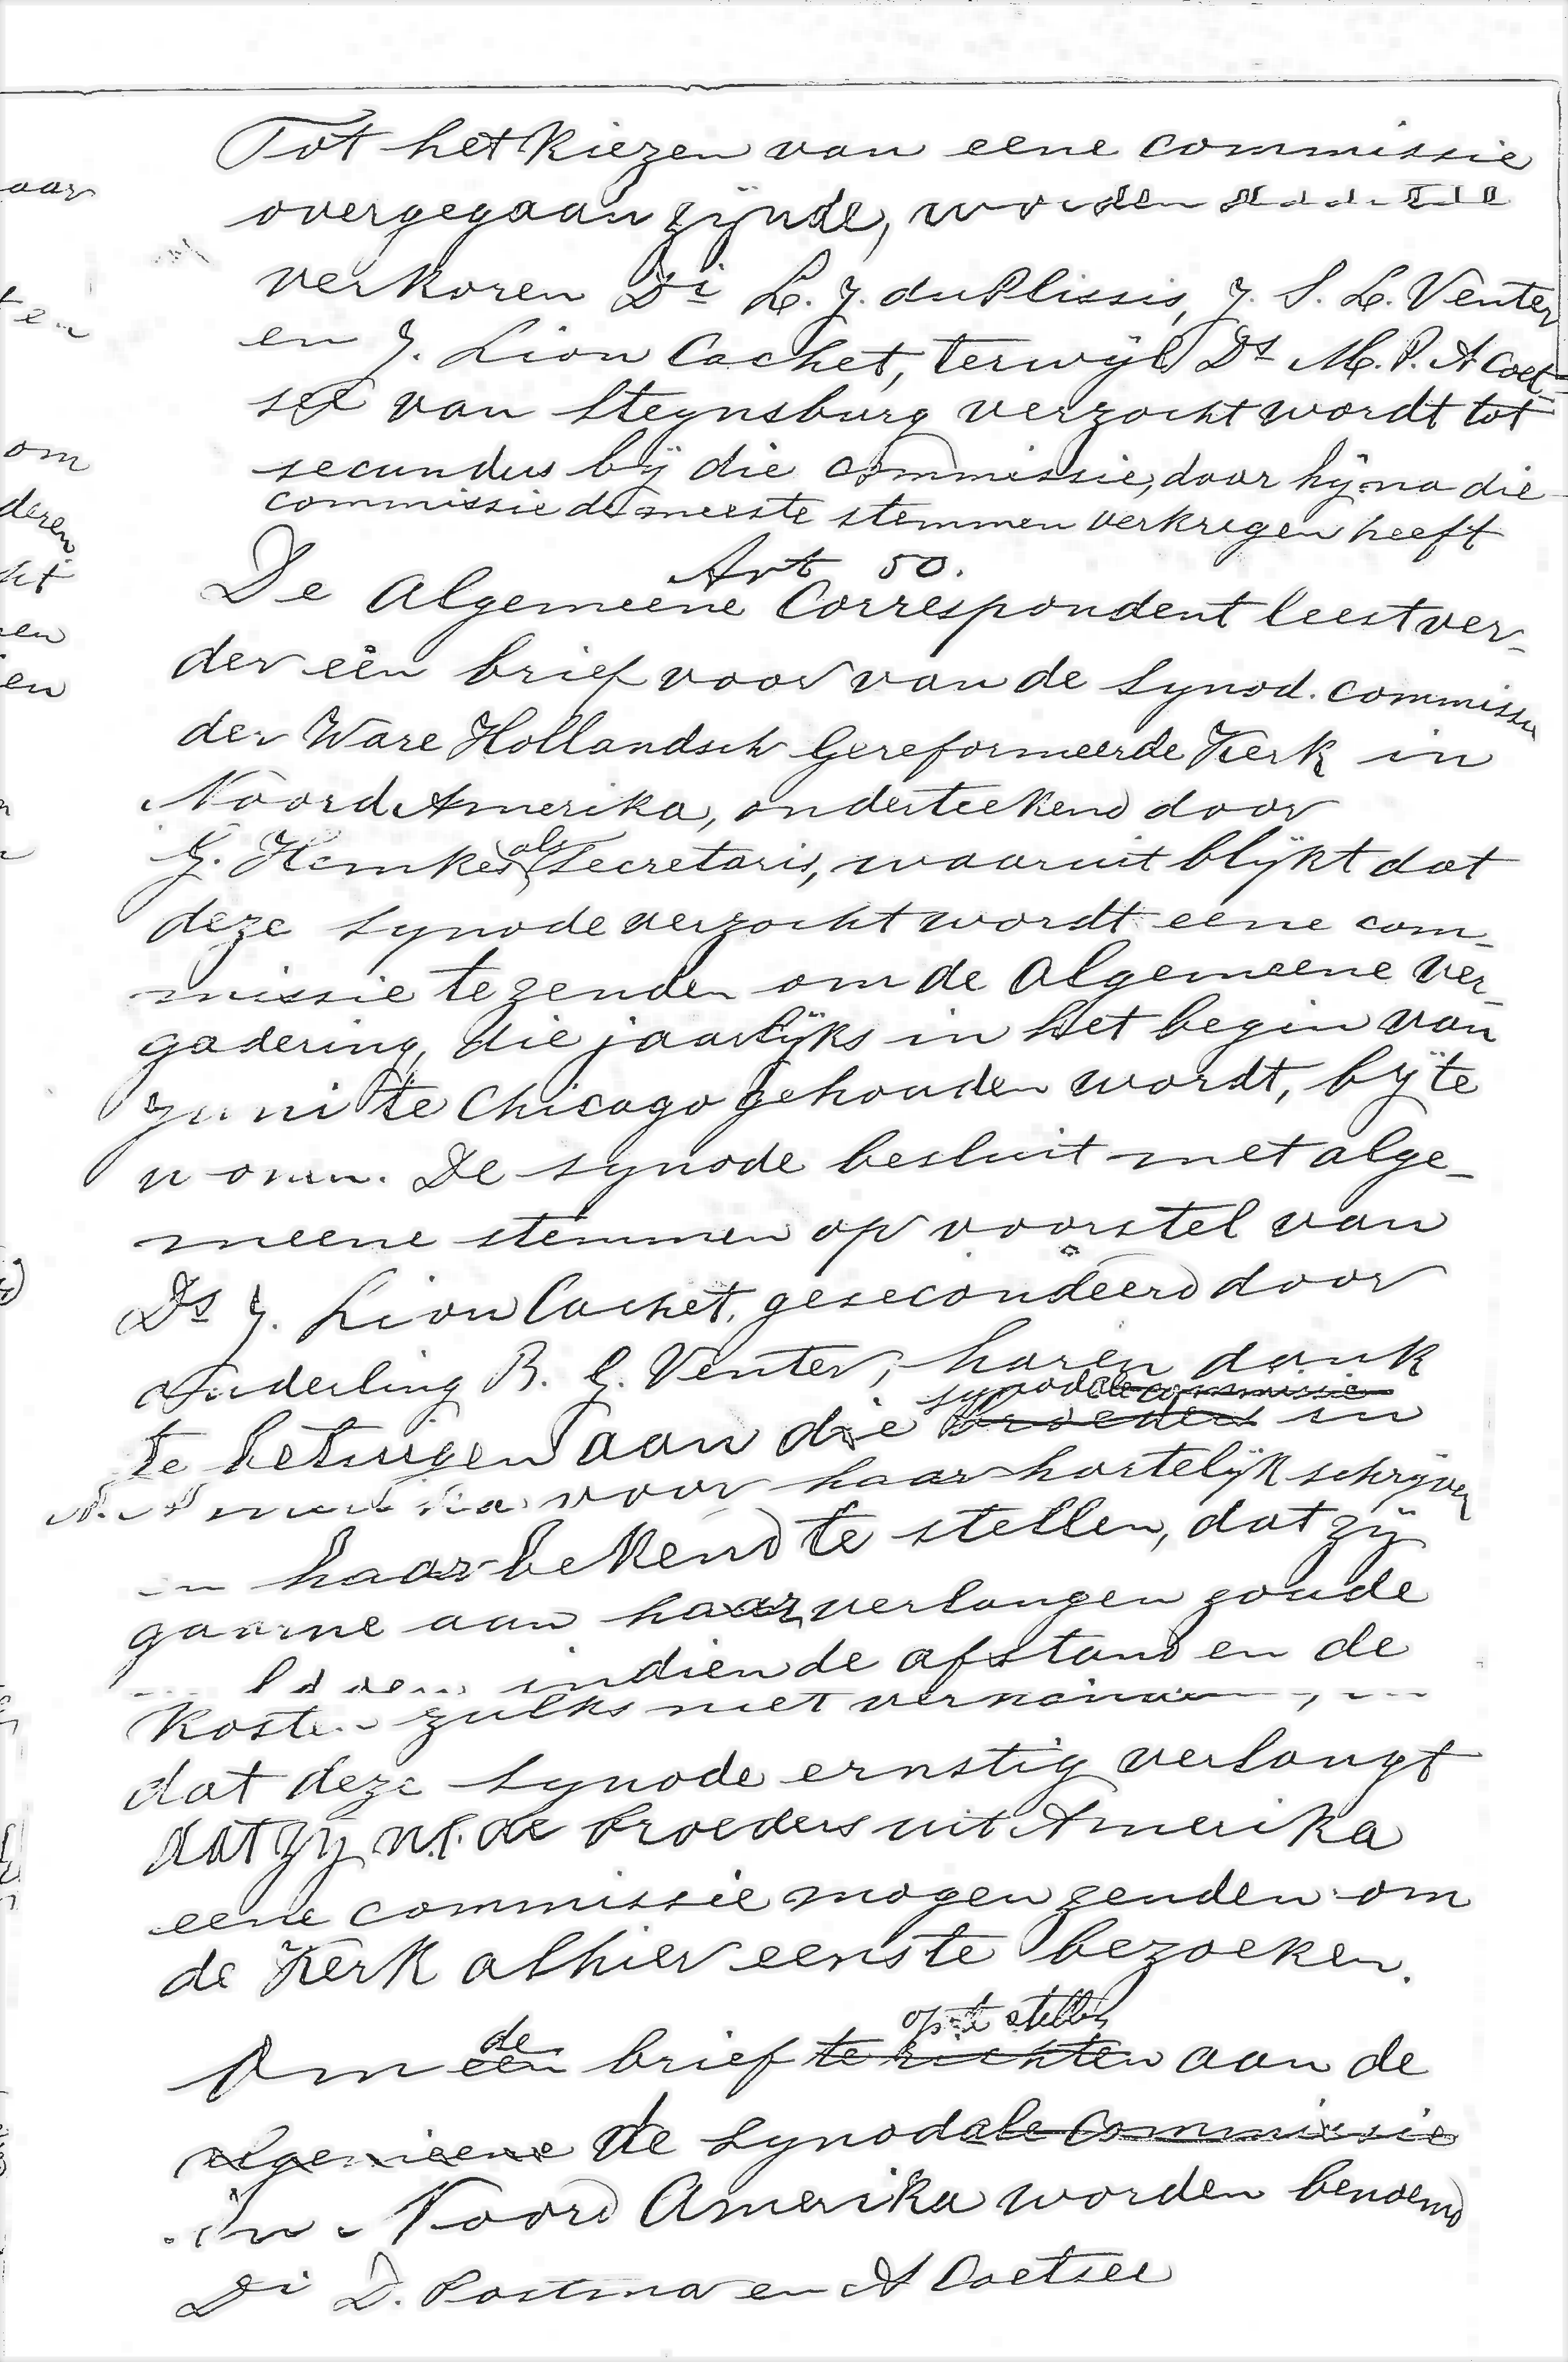 Tot het kiezen van eene commissie
overgegaan zijnde, worden
verkoren Di L. J. du Plissis, J. S. L. Venter
en J. Lion Cachet, terwijl Ds M. P. A Coet=
see van Steynsburg verzocht wordt tot
secundus bij die commissie, daar hij na die
commissie de meeste stemmen verkregen heeft
Art 50.
De Algemeene Correspondent leest ver-
der één brief voor van de Synod. commissie
der Ware Hollandsch Gereformeerde Kerk in
Noord Amerika, onderteekend door
G. Hemkes als Secretaris, waaruit blijkt dat
deze Synode verzocht wordt eene com-
missie te zenden om de Algemeene Ver-
gadering, die jaarlijks in het begin van
Juni te Chicago gehouden wordt, bij te
wonen. De Synode besluit met alge-
meene stemmen op voorstel van
Ds J. Lion Cachet, gesecondeerd door
Ouderling B. G. Venter, haren dank
synodale commissie
te betuigen aan die broeders in
N. Amerika voor haar hartelijk schrijven
en haar bekend te stellen, dat zij
gaarne aan haar verlangen zoude
indien de afstand en de
Kosten zulks niet
dat deze Synode ernstig verlangt
dat zij n.l. de broeders uit Amerika
eene commissie mogen zenden om
de Kerk alhier eens te bezoeken.
de op te stellen
Om een brief te richten aan de
algemeene de Synodale Commissie
in Noord Amerika worden benoemd
Di D. Postma en A Coetsee
aar
ten
om
deren
en
en